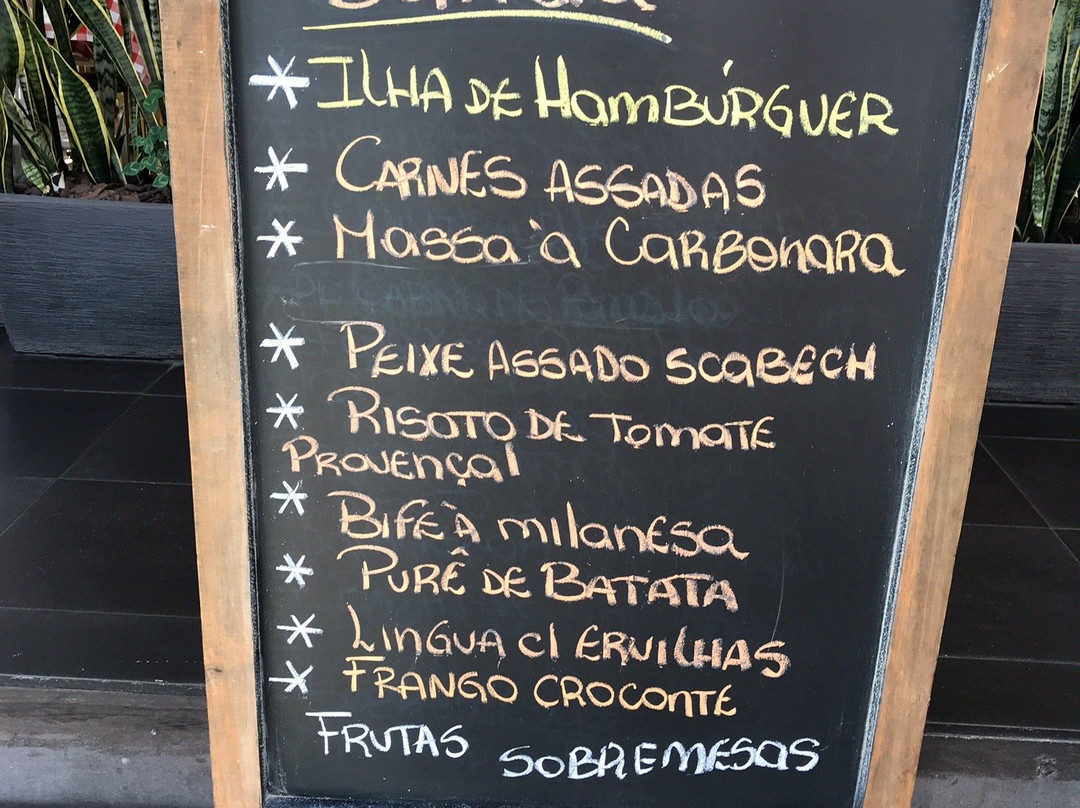 * ILHA DE HAMBÚRGUER
* CARNES ASSADAS
* MASSA À CARBONARA
* PEIXE ASSADO SCABECH
* RISOTO DE TOMATE
PROVENÇAL
* BIFE À MILANESA
* PURÊ DE BATATA
* LINGUA C/ ERVILHAS
* FRANGO CROCONTE
FRUTAS SOBREMESAS